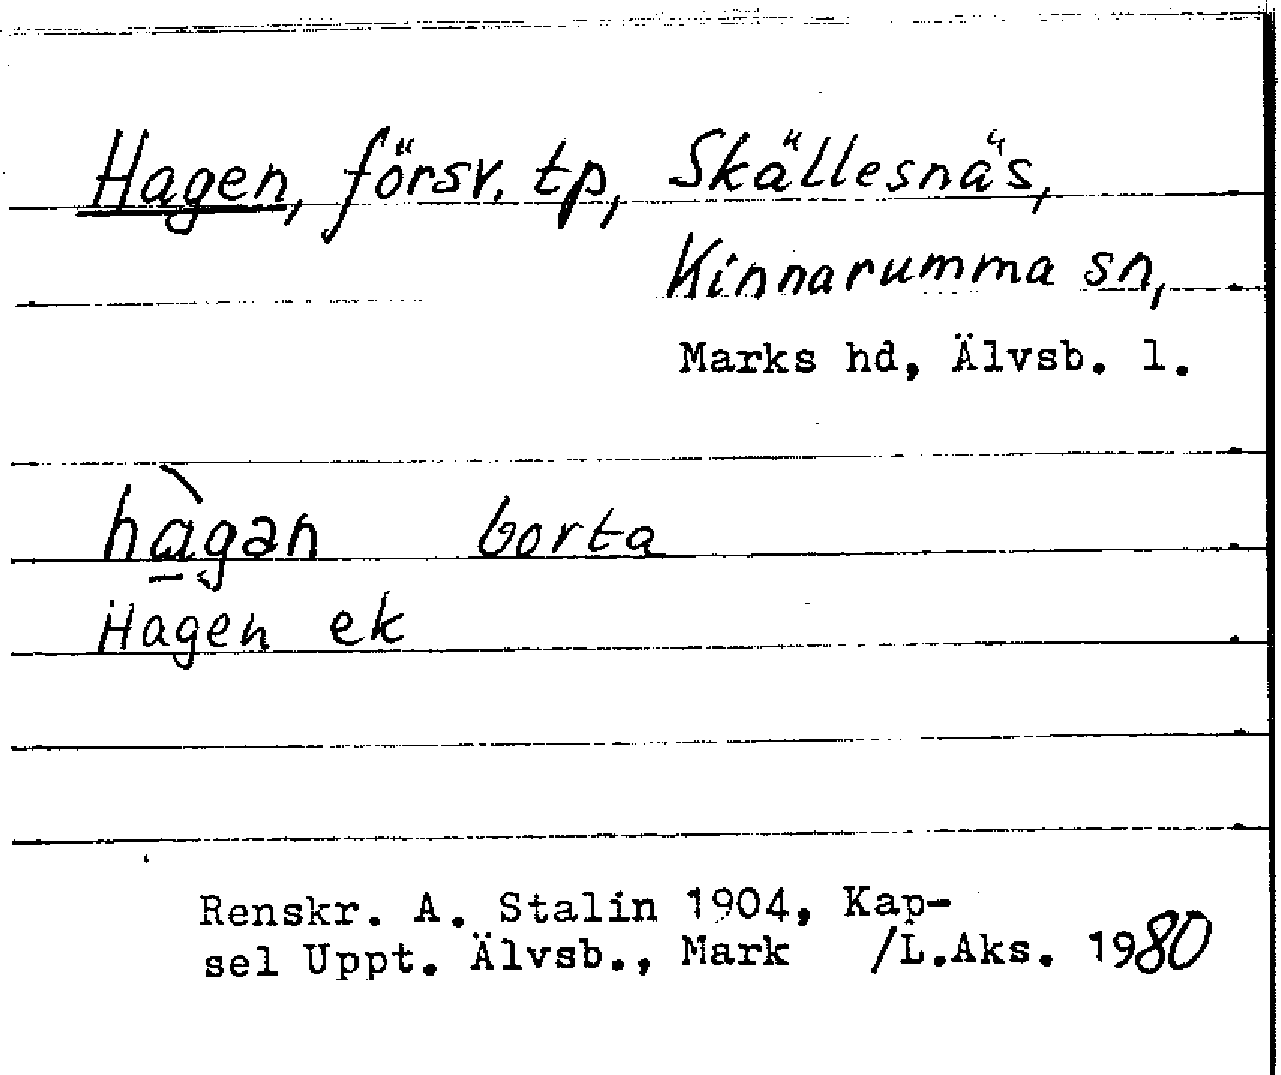 Hagen, försv. tp, Skällesnäs,
Kinnarumma sn,
Marks hd, Älvsb. l.
hàgan borta
Hagen ek
Renskr. A. Stalin 1904, Kap-
sel Uppt. Älvsb., Mark /L.Aks. 1980